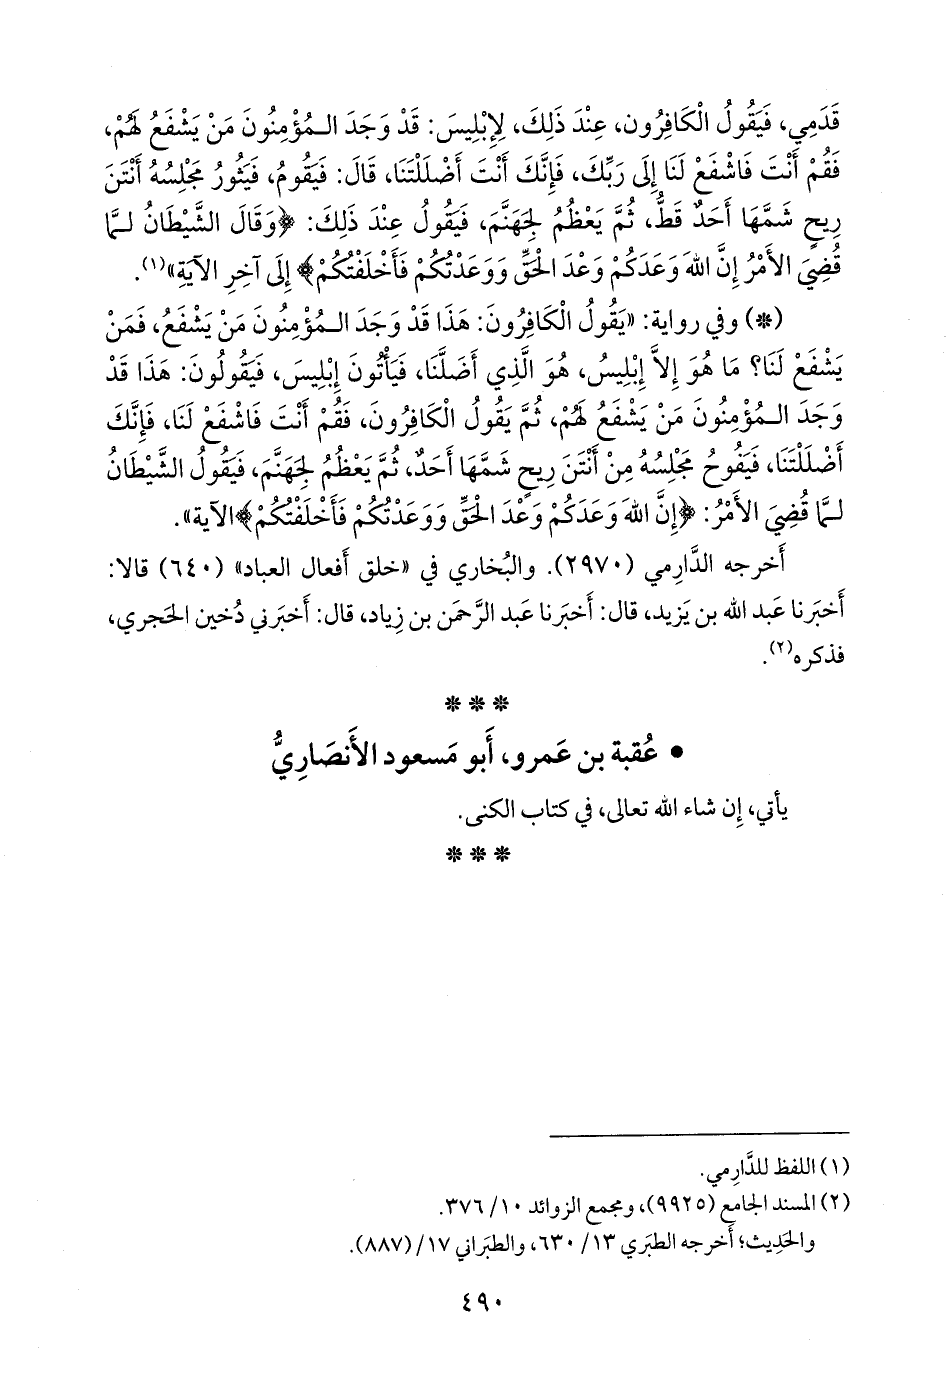 قَدَمِي، فَيَقُولُ الْكَافِرُون، عِنْدَ ذَلِكَ، لِإِبْلِيسَ: قَدْ وَجَدَ الـمُؤْمِنُونَ مَنْ يَشْفَعُ لَهُمْ،
فَقُمْ أَنْتَ فَاشْفَعْ لَنَا إِلَى رَبِّكَ، فَإِنَّكَ أَنْتَ أَضْلَلْتَنَا، قَالَ: فَيَقُومُ، فَيَثُورُ مَجْلِسُهُ أَنْتَنَ
رِيحٍ شَمَّهَا أَحَدٌ قَطُّ، ثُمَّ يَعْظُمُ لِجَهَنَّمَ، فَيَقُولُ عِنْدَ ذَلِكَ: ﴿وَقَالَ الشَّيْطَانُ لـمَّا
قُضِيَ الأَمْرُ إِنَّ اللهَ وَعَدَكُمْ وَعْدَ الحَقِّ وَوَعَدْتُكُمْ فَأَخْلَفْتُكُمْ﴾ إِلَى آخِرِ الآيَةِ»(١).
(*) وفي رواية: «يَقُولُ الْكَافِرُونَ: هَذَا قَدْ وَجَدَ الـمُؤْمِنُونَ مَنْ يَشْفَعُ، فَمَنْ
يَشْفَعْ لَنَا؟ مَا هُوَ إِلاَّ إِبْلِيسُ، هُوَ الَّذِي أَضَلَّنَا، فَيَأْتُونَ إِبْلِيسَ، فَيَقُولُونَ: هَذَا قَدْ
وَجَدَ الـمُؤْمِنُونَ مَنْ يَشْفَعُ لَهُمْ، ثُمَّ يَقُولُ الْكَافِرُونَ، فَقُمْ أَنْتَ فَاشْفَعْ لَنَا، فَإِنَّكَ
أَضْلَلْتَنَا، فَيَفُوحُ مَجْلِسُهُ مِنْ أَنْتَنَ رِيحٍ شَمَّهَا أَحَدٌ، ثُمَّ يَعْظُمُ لِجَهَنَّمَ، فَيَقُولُ الشَّيْطَانُ
لـمَّا قُضِيَ الأَمْرُ: ﴿إِنَّ اللهَ وَعَدَكُمْ وَعْدَ الحَقِّ وَوَعَدْتُكُمْ فَأَخْلَفْتُكُمْ﴾الآية».
أَخرجه الدَّارِمي (٢٩٧٠). والبُخاري في «خلق أفعال العباد» (٦٤٠) قالا:
أَخبَرنا عَبد الله بن يَزيد، قال: أَخبَرنا عَبد الرَّحمَن بن زِياد، قال: أَخبَرني دُخين الحَجري،
فذكره(٢).
***
• عُقبة بن عَمرو، أَبو مَسعود الأَنصَارِيُّ
يأتي، إِن شاء الله تعالى، في كتاب الكنى.
***
(١) اللفظ للدَّارِمي.
(٢) المسند الجامع (٩٩٢٥)، ومجمع الزوائد ١٠/ ٣٧٦.
والحَدِيث؛ أَخرجه الطبَري ١٣/ ٦٣٠، والطبَراني ١٧/ (٨٨٧).
٤٩٠